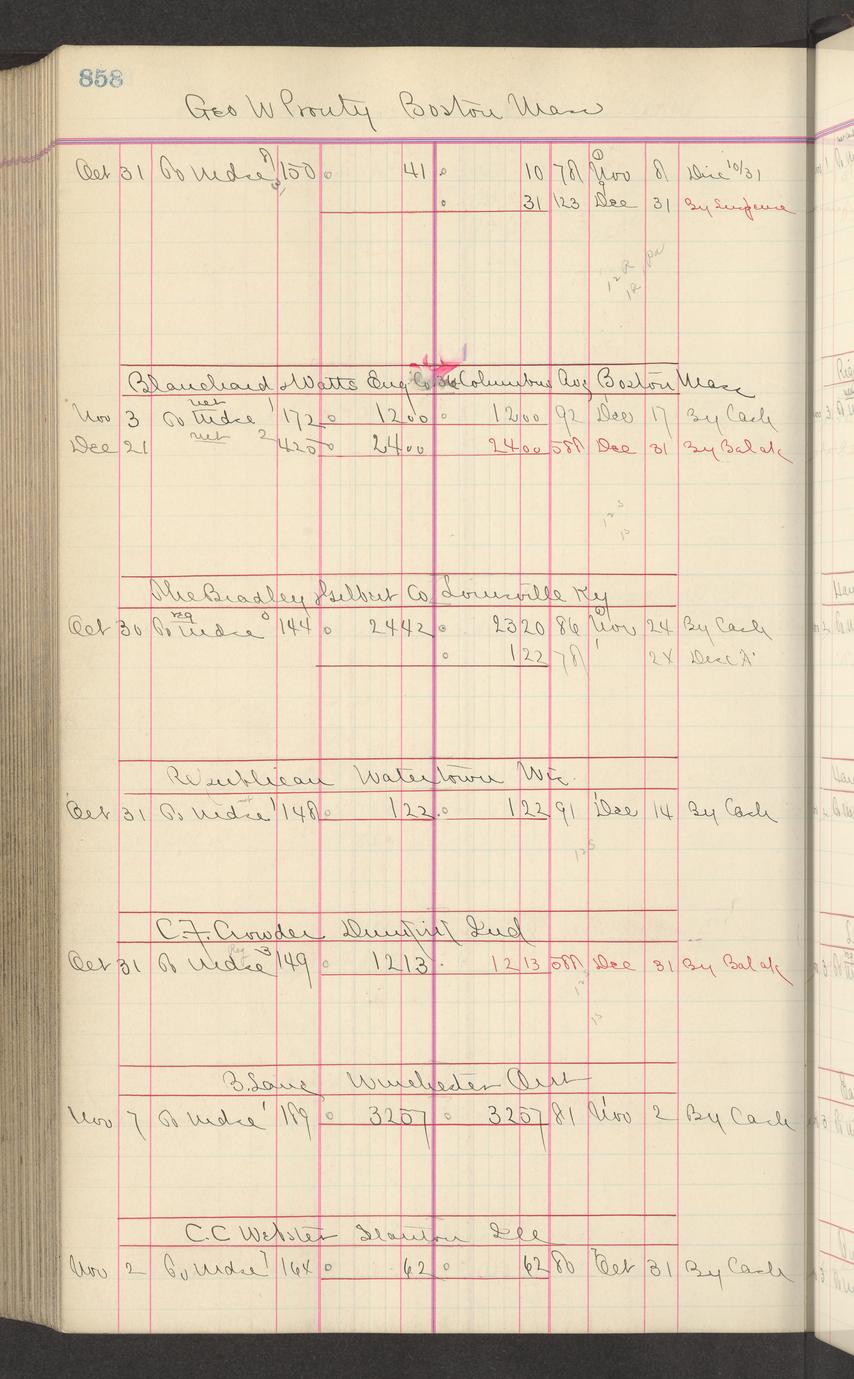 858
Geo W Prouty Boston Mass
Oct 31 To Mdse 150 41 10 78 Nov 8 Disc 10/31
31 123 Dec 31 By Suspense
Blanchard & Watts Eng Co Columbus Ave Boston Mass
Nov 3 To Mdse net 1 172 1200 1200 92 Dec 17 By Cash
Dec 21 net 2 425 2400 2400 588 Dec 31 By Bal
The Bradley & Gilbert Co Louisville Ky
Oct 30 To Mdse 144 2442 2320 86 Nov 24 By Cash
122 78 24 Disc
Republican Watertown Wis
Oct 31 To Mdse 1 148 122 122 91 Dec 14 By Cash
C.F. Crowder Ind
Oct 31 To Mdse 3 149 1213 1213 588 Dec 31 By Bal
B. Lane Winchester Ont
Nov 7 To Mdse 1 189 3257 3257 81 Nov 2 By Cash
C.C Webster Ill
Nov 2 To Mdse 7 164 62 62 80 Oct 31 By Cash